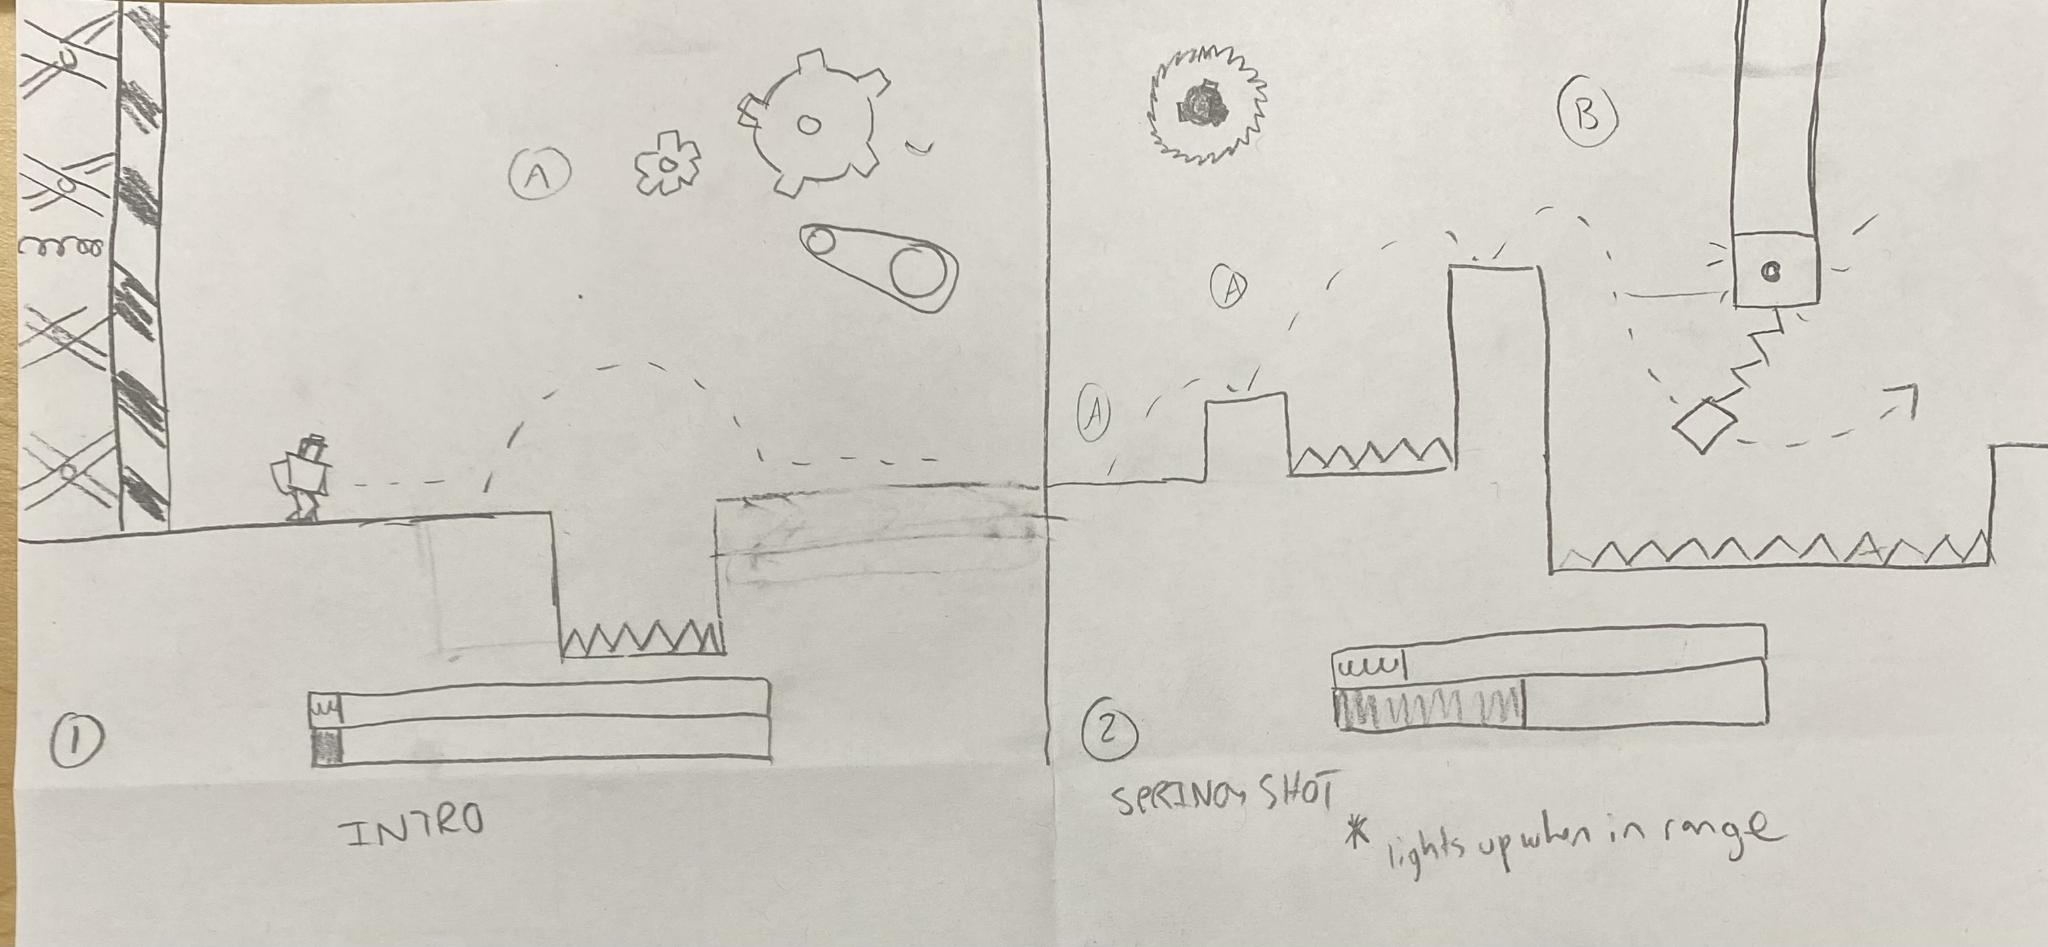 A
B
A
A
1
INTRO
2
SPRING SHOT
* lights up when in range